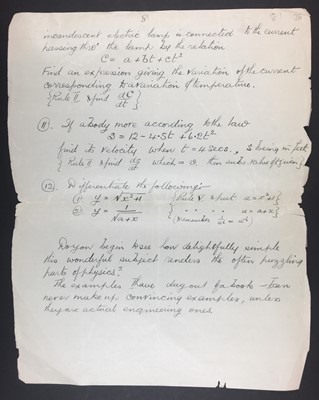 8
incandescent electric lamp is connected to the current
passing thro' the lamp by the relation
C = a + bt + ct²
Find an expression giving the variation of the current
corresponding to a variation of temperature.
{Rule II & find dC/dt}
(11). If a body move according to the law
S = 12 - 4.5t + 6.2t²
find its velocity when t = 4 secs., S being in feet
{Rule II & find ds/dt which = v. then
(12). Differentiate the following:-
(1) y = √x²+1 {Rule V & put u = x²+1}
(2) y = 1/√a+x { " " " u = a+x}
{Remember
Do you begin to see how delightfully simple
this wonderful subject renders the often puzzling
parts of physics?
The examples I have dug out of a book - I can
never make up convincing examples, unless
they are actual engineering ones